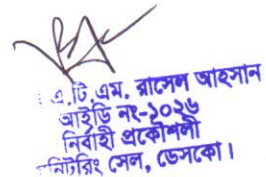 এ.টি.এম. রাসেল আহসান
আইডি নং-১০২৬
নির্বাহী প্রকৌশলী
মনিটরিং সেল, ডেসকো।